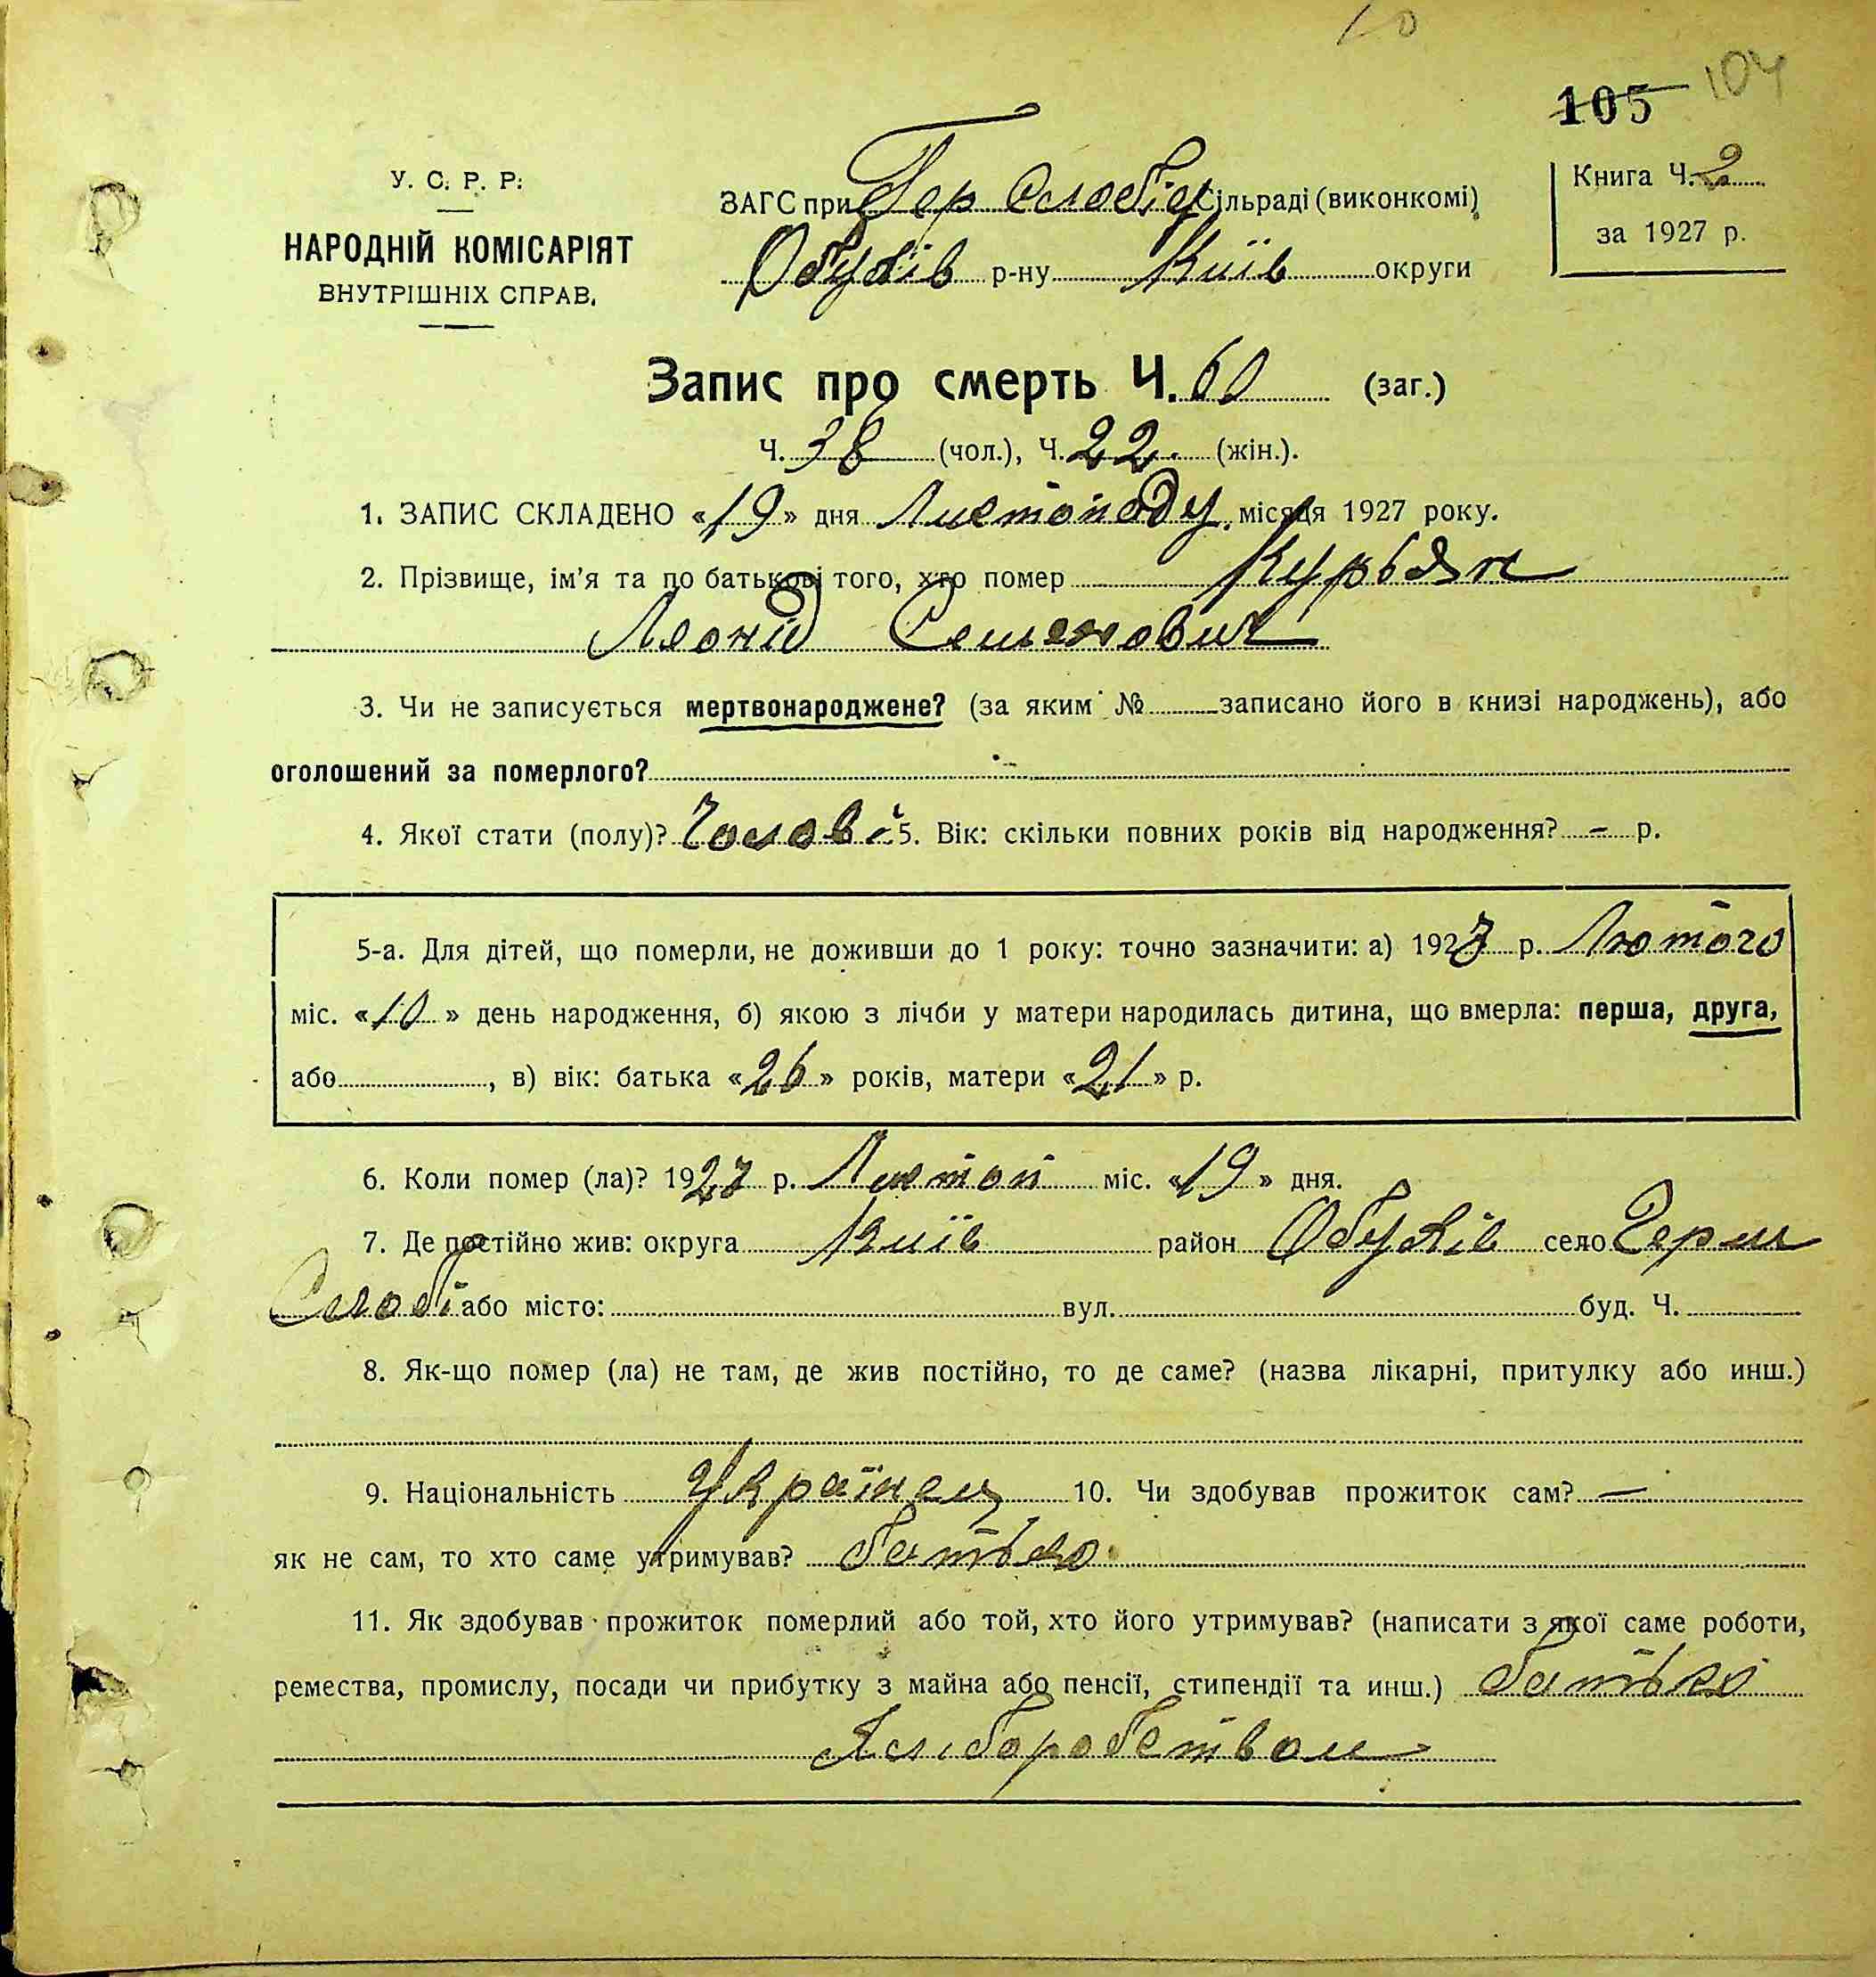 10
105 104
У. С. Р. Р.
НАРОДНІЙ КОМІСАРІЯТ
ВНУТРІШНІХ СПРАВ.
ЗАГС при Гер Слобід Сільраді (виконкомі)
Обухів р-ну Київ округи
Книга Ч. 2
за 1927 р.
Запис про смерть Ч. 60 (заг.)
Ч. 38 (чол.), Ч. 22. (жін.).
1. ЗАПИС СКЛАДЕНО «19» дня Листопаду місяця 1927 року.
2. Прізвище, ім'я та по батькові того, хто помер Курьян
Леонід Семенович
3. Чи не записується мертвонароджене? (за яким № записано його в книзі народжень), або
оголошений за померлого?
4. Якої стати (полу)? Чолові 5. Вік: скільки повних років від народження? – р.
5-а. Для дітей, що померли, не доживши до 1 року: точно зазначити: а) 1927 р. Лютого
міс. «10» день народження, б) якою з лічби у матери народилась дитина, що вмерла: перша, друга,
або , в) вік: батька «26» років, матери «21» р.
6. Коли помер (ла)? 1927 р. Листоп міс. «19» дня.
7. Де постійно жив: округа Київ район Обухів село Герм
Слобі або місто: вул. буд. Ч.
8. Як-що помер (ла) не там, де жив постійно, то де саме? (назва лікарні, притулку або инш.)
9. Національність Українец 10. Чи здобував прожиток сам? —
як не сам, то хто саме утримував? батько
11. Як здобував прожиток померлий або той, хто його утримував? (написати з якої саме роботи,
ремества, промислу, посади чи прибутку з майна або пенсії, стипендії та инш.) батько